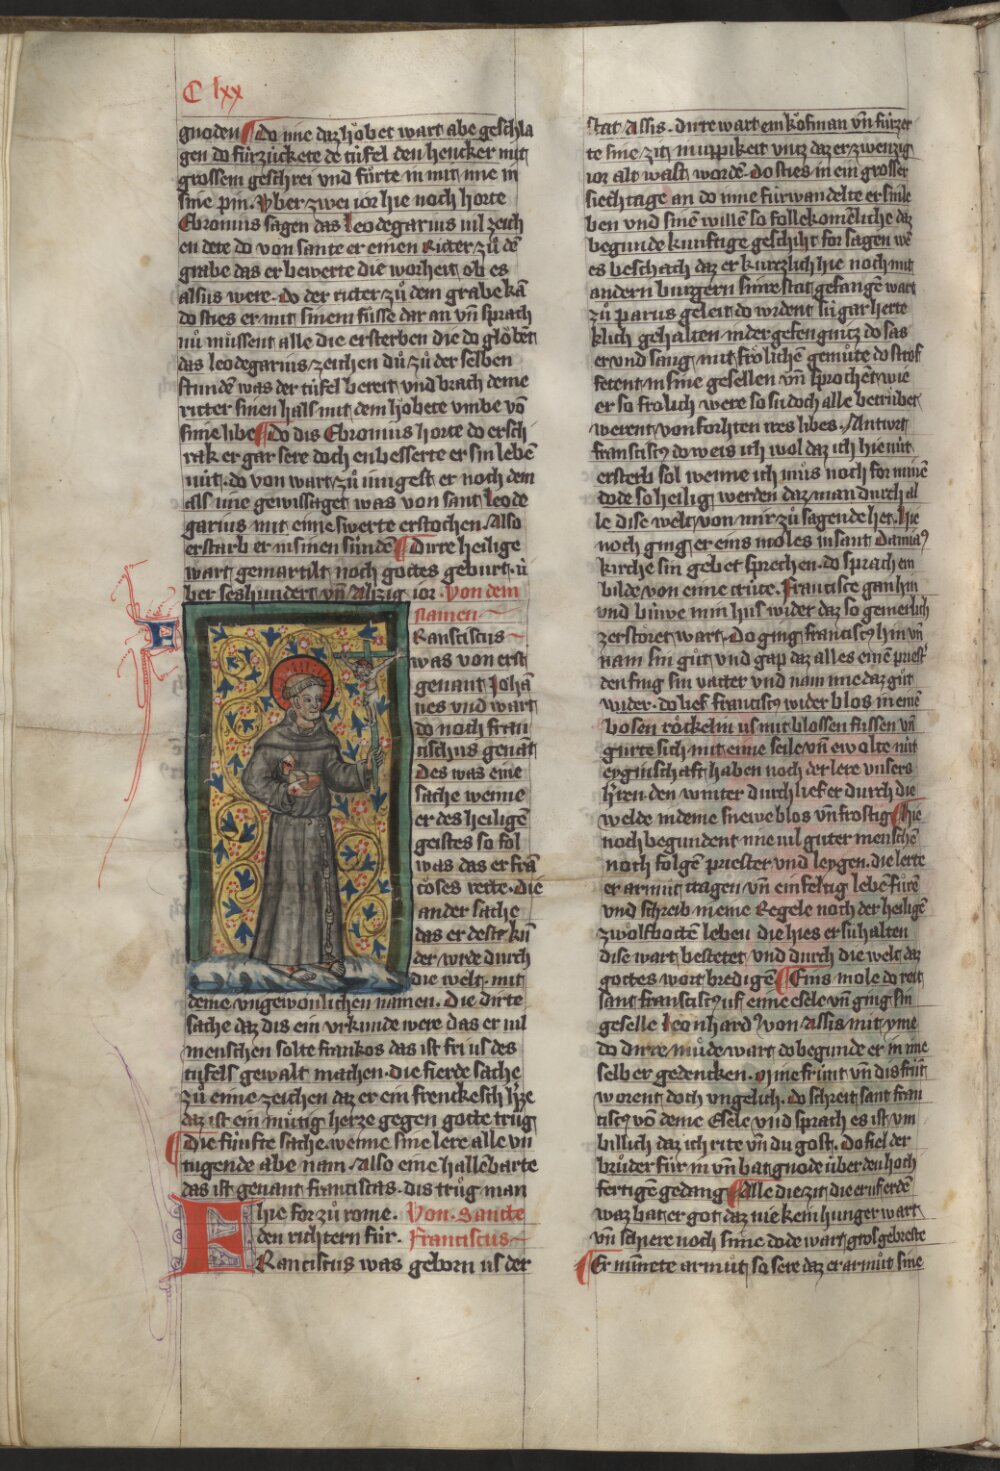 C lxx
gnoden Do nie daz hŏbet wart abe geschla
gen do fürzückete de tüfel den hencker mit
grossem geschrei vnd fürte in mit nie in
sine pin. Vber zwei ior hie noch horte
Ebronius sagen das Leodegarius uil zeich
en dete do von sante er einen Ritter zů dē
grabe das er bewerte die worheit ob es
alsus were. do der ritter zů dem grabe kā
do sties er mit sinem fůsse dar an vn̄ sprach
nů můssent alle die ersterben die do glŏbēt
das leodegarius zeichen dů zů der selben
stundē was der tüfel bereit vnd brach deme
ritter sinen hals mit dem hŏbete vmbe vō
sime libe Do dis Ebronius horte do ersch
rak er gar sere doch enbesserte er sin lebē
nüt. do von wart zů iungest er noch dem
als ime gewissaget was von sant Leode
garius mit eime swerte erstochen. Also
erstarb er in sinen sündē Dirre heilige
wart gemartilt noch gottes geburt. ů
ber seshundert vn̄ ahzig ior. Von dem
namen
Ransciscus
was von erst
genant Johā
nes vnd wart
do noch fran
ciscus genāt
Des was eine
sache wenne
er des heiligē
geistes so fol
was das er frā
coses rette. die
ander sache
das er deste kū
der wrde durch
die welt. mit
deme vngewonlichen namen. Die dirte
sache daz dis ein vrkunde were das er uil
menschen solte frankos das ist fri us des
tufels gewalt machen. die fierde sache
zů eime zeichen daz er ein frenckesch h̄ze
daz ist ein mů̊tig herze gegen gotte trůg
Die fünfte sache wenne sine lere alle vn
tugende abe nam. Also eine hallēbarte
das ist genant franciscas. dis trůg man
hie for zů rome. Von Sancte
den richtern für. Franciscus
FRanciscus was geborn us der
stat Assis. dirre wart ein kŏfman vn̄ fürzer
te sine zit in üppikeit vntz daz er zwenzig
ior alt wast wordē. do sties in ein grosser
siechtage an do inne fürwandelte er sin le
ben vnd sinē willē so follekomēliche daz
begunde kunftige geschiht for sagen wē
es beschach daz er kurzlich hie noch mit
andern burgern sinre stat gefangē wart
zů parus geleit do wrdent sü gar herte
klich gehalten in der gefengnitz do sas
er vnd sang mit frŏlichē gemůte do strof
fetent in sine gesellen vn̄ sprochēt wie
er so frolich were so sü doch alle betrübet
werent von forhten irs libes. Antwrt
franciscus do weis ich wol daz ich hie nüt
ersterb sol wenne ich můs noch for minē
dode so heilig werden daz man durch al
le dise welt von mir zů sagende het. hie
noch ging er eins moles in sant Damiaꝰ
kirche sin gebet sprechen. do sprach ein
bilde von eime crüce. Francisce gan hin
vnd büwe min hus wider daz so gemerlich
zerstŏret wart. Do ging franciscꝰ hin vn̄
nam sin gůt vnd gap daz alles einē priest̄
den fing sin vatter vnd nam ime daz gůt
wider. do lief franciscꝰ wider blos in eime
bosen rŏckelin us mit blossen fůssen vn̄
gurte sich mit eime seile vn̄ ewolte nüt
eyginschaft haben noch der lere vnsers
h̄ren den winter durch lief er durch die
welde in deme snewe blos vn̄ frostig hie
noch begundent ime uil guter menschē
noch folgē priester vnd leygen. die lerte
er armůt tragen vn̄ einfeltig lebē fůrē
vnd schreib in eine Regele noch der heiligē
zwolfbottē leben die hies er sü halten
dise wart bestetet vnd durch die welt daz
gottes wort bredigē Eins mole do reit
sant franciscꝰ uf eime esele vn̄ ging sin
geselle Leonhardꝰ von Assis mit yme
do dirre můde wart do begunde er in ime
selber gedencken. Mine frünt vn̄ dis frünt
worent doch vngelich. do schreit sant fran
ciscꝰ vō deme Esele vnd sprach es ist vm
billich daz ich rite vn̄ du gost. Do fiel der
brůder für in vn̄ bat gnode über den hoch
fertigē gedang Alle die zit die er uf erdē
waz bat er got daz nie kein hunger wart
vn̄ schiere noch sime dode wart gros gebreste
Er minnete armůt so sere daz er armůt sine